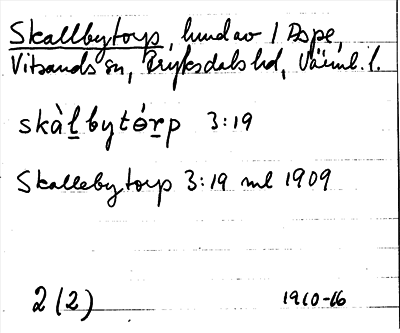 Skallbytorp, hmd av 1 Dspe,
Vitsands sn, Fryksdals hd, Värml. l.
skàḻbytóṟp 3:19
Skallebytorp 3:19 ml 1909
2 (2) 1960-66